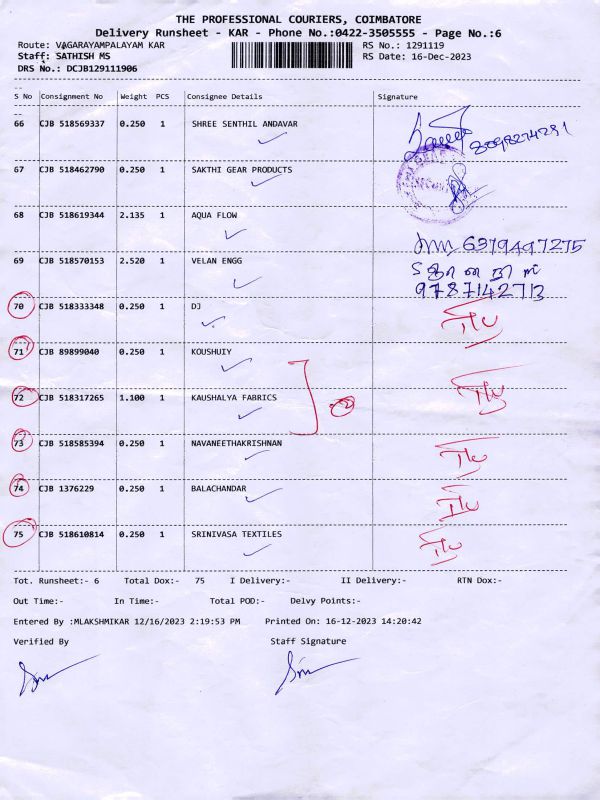 THE PROFESSIONAL COURIERS, COIMBATORE
Delivery Runsheet - KAR - Phone No.:0422-3505555 - Page No.:6
Route: VAGARAYAMPALAYAM KAR RS No.: 1291119
Staff: SATHISH MS RS Date: 16-Dec-2023
DRS No.: DCJB129111906
S No Consignment No Weight PCS Consignee Details Signature
66 CJB 518569337 0.250 1 SHREE SENTHIL ANDAVAR
8098274281
67 CJB 518462790 0.250 1 SAKTHI GEAR PRODUCTS
68 CJB 518619344 2.135 1 AQUA FLOW
6379497275
69 CJB 518570153 2.520 1 VELAN ENGG
9787142713
70 CJB 518333348 0.250 1 DJ
71 CJB 89899040 0.250 1 KOUSHUIY
72 CJB 518317265 1.100 1 KAUSHALYA FABRICS
73 CJB 518585394 0.250 1 NAVANEETHAKRISHNAN
74 CJB 1376229 0.250 1 BALACHANDAR
75 CJB 518610814 0.250 1 SRINIVASA TEXTILES
Tot. Runsheet:- 6 Total Dox:- 75 I Delivery:- II Delivery:- RTN Dox:-
Out Time:- In Time:- Total POD:- Delvy Points:-
Entered By :MLAKSHMIKAR 12/16/2023 2:19:53 PM Printed On: 16-12-2023 14:20:42
Verified By Staff Signature